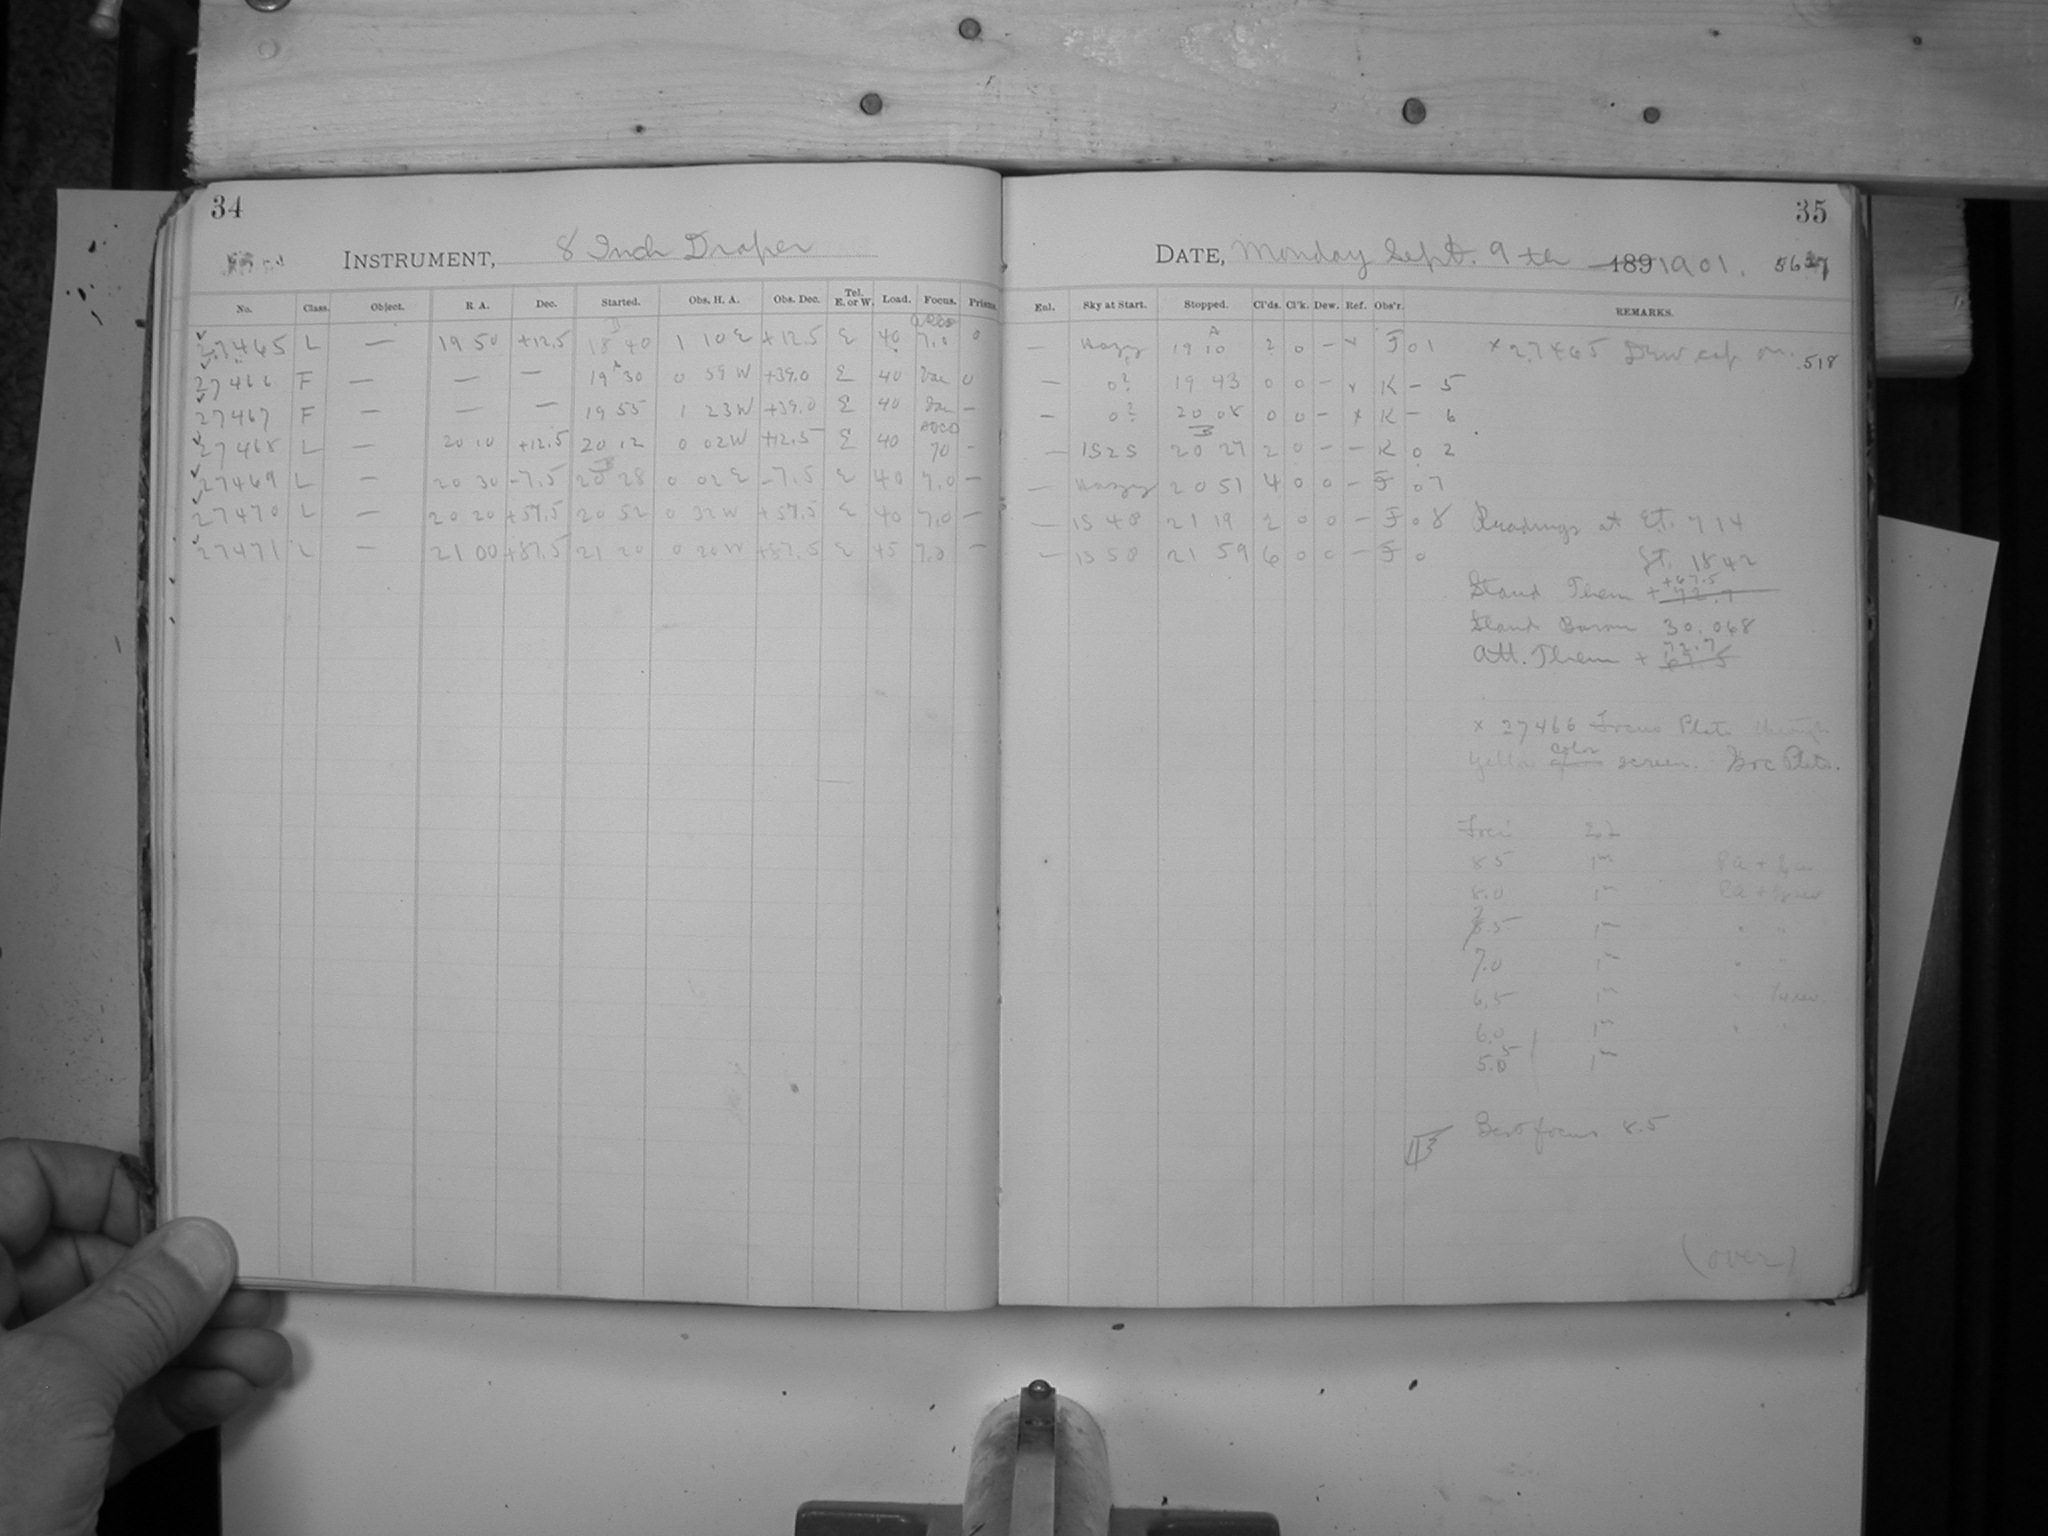 34
INSTRUMENT, 8 Inch Draper
No. Class. Object. R. A. Dec. Started. Obs. H. A. Obs. Dec. Tel. E. or W. Load. Focus. Prisms
27465 L — 19 50 +12.5 18 40 1 10 E +12.5 E 40 7.0 0
27466 F — — — 19 30 0 59 W +39.0 E 40 Var 0
27467 F — — — 19 55 1 23 W +39.0 E 40 Var —
27468 L — 20 10 +12.5 20 12 0 02 W +12.5 E 40 70 -
27469 L — 20 30 -7.5 20 28 0 02 E -7.5 E 40 7.0 —
27470 L — 20 20 +57.5 20 52 0 32 W +57.5 E 40 7.0 —
27471 L — 21 00 +87.5 21 20 0 20 W +87.5 E 45 7.0 —
35
DATE, Monday Sept. 9th 189 1901.
Enl. Sky at Start. Stopped. Cl'ds. Cl'k. Dew. Ref. Obs'r. REMARKS.
— Hazy 19 10 2 0 - x F 01 x 27465 Dew cap on. 518
— 0? 19 43 0 0 - x K - 5
— 0? 20 08 0 0 - x K - 6
— 1525 20 27 2 0 - - K 0 2
— Hazy 20 51 4 0 0 - F 07
— 1548 21 19 2 0 0 - F 08 Readings at Et. 714
— 1558 21 59 6 0 0 - F 0 St. 1842
Stand Therm +67.5 72.7
Stand Barom 30.068
Att. Therm + 72.7 67.5
x 27466 Focus Plate through
yellow color screen. Plate.
Foci
8.5 1m
8.0 1m
7.5 1m " "
7.0 1m " "
6.5 1m
6.0 1m " "
5.5 1m
Best focus 8.5
(over)